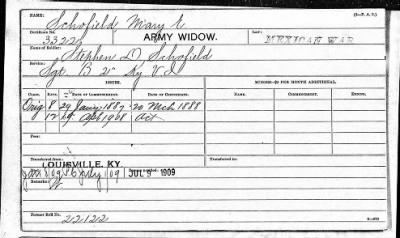 NAME: Schofield Mary E. (3—P. A. P.)
Certificate No. ARMY WIDOW. Law:
3322 MEXICAN WAR
Name of Soldier: Stephen D Schofield
Service: Sgt. B 2" Ky V I
ISSUES. MINORS—$2 PER MONTH ADDITIONAL.
CLASS. RATE. DATE OF COMMENCEMENT. DATE OF CERTIFICATE. NAME. COMMENCEMENT. EXPIRE.
Orig 8 29 Jany 1887 20 Mch 1888
12 19 Apl 1908 Act
Fees:
Transferred from: Transferred to:
LOUISVILLE, KY.
July /09 JUL 3rd 1909
Remarks:
Former Roll No. 22122